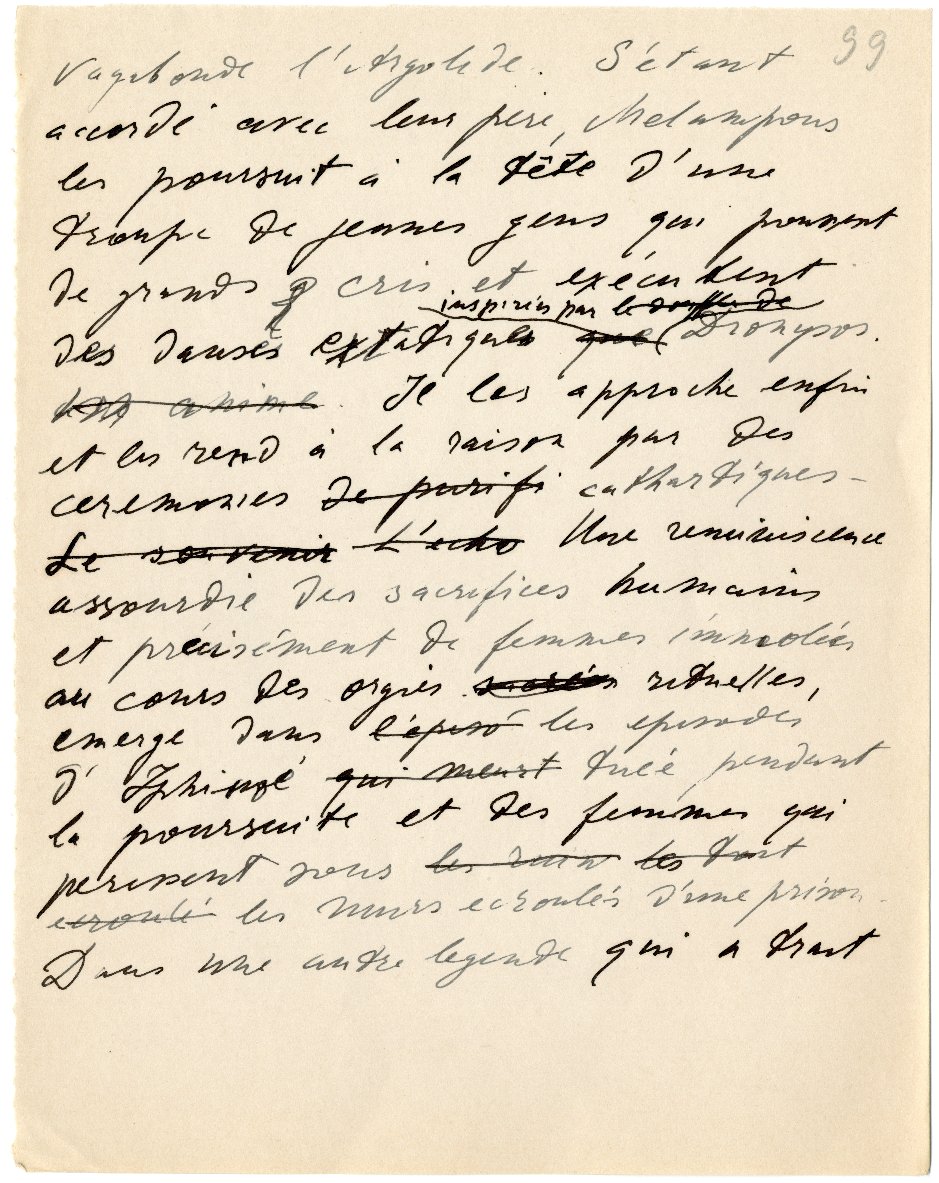 99
Vagabonde l'Argolide. S'étant
accordé avec leur père, Melampous
les poursuit à la tête d'une
troupe de jeunes gens qui poussent
de grands cris et exécutent
inspirées par le souffle de
des danses extatiques que Dionysos.
anime. Il les approche enfin
et les rend à la raison par des
ceremonies de purifi cathartiques -
Le souvenir L'echo Une reminiscence
assourdie des sacrifices humains
et précisément de femmes immolées
au cours des orgies sacrées rituelles,
emerge dans l'épiso les episodes
d'Iphinoé qui meurt tuée pendant
la poursuite et des femmes qui
perissent sous les ruin les toit
ecroulé les murs ecroulés d'une prison.
Dans une autre legende qui a trait